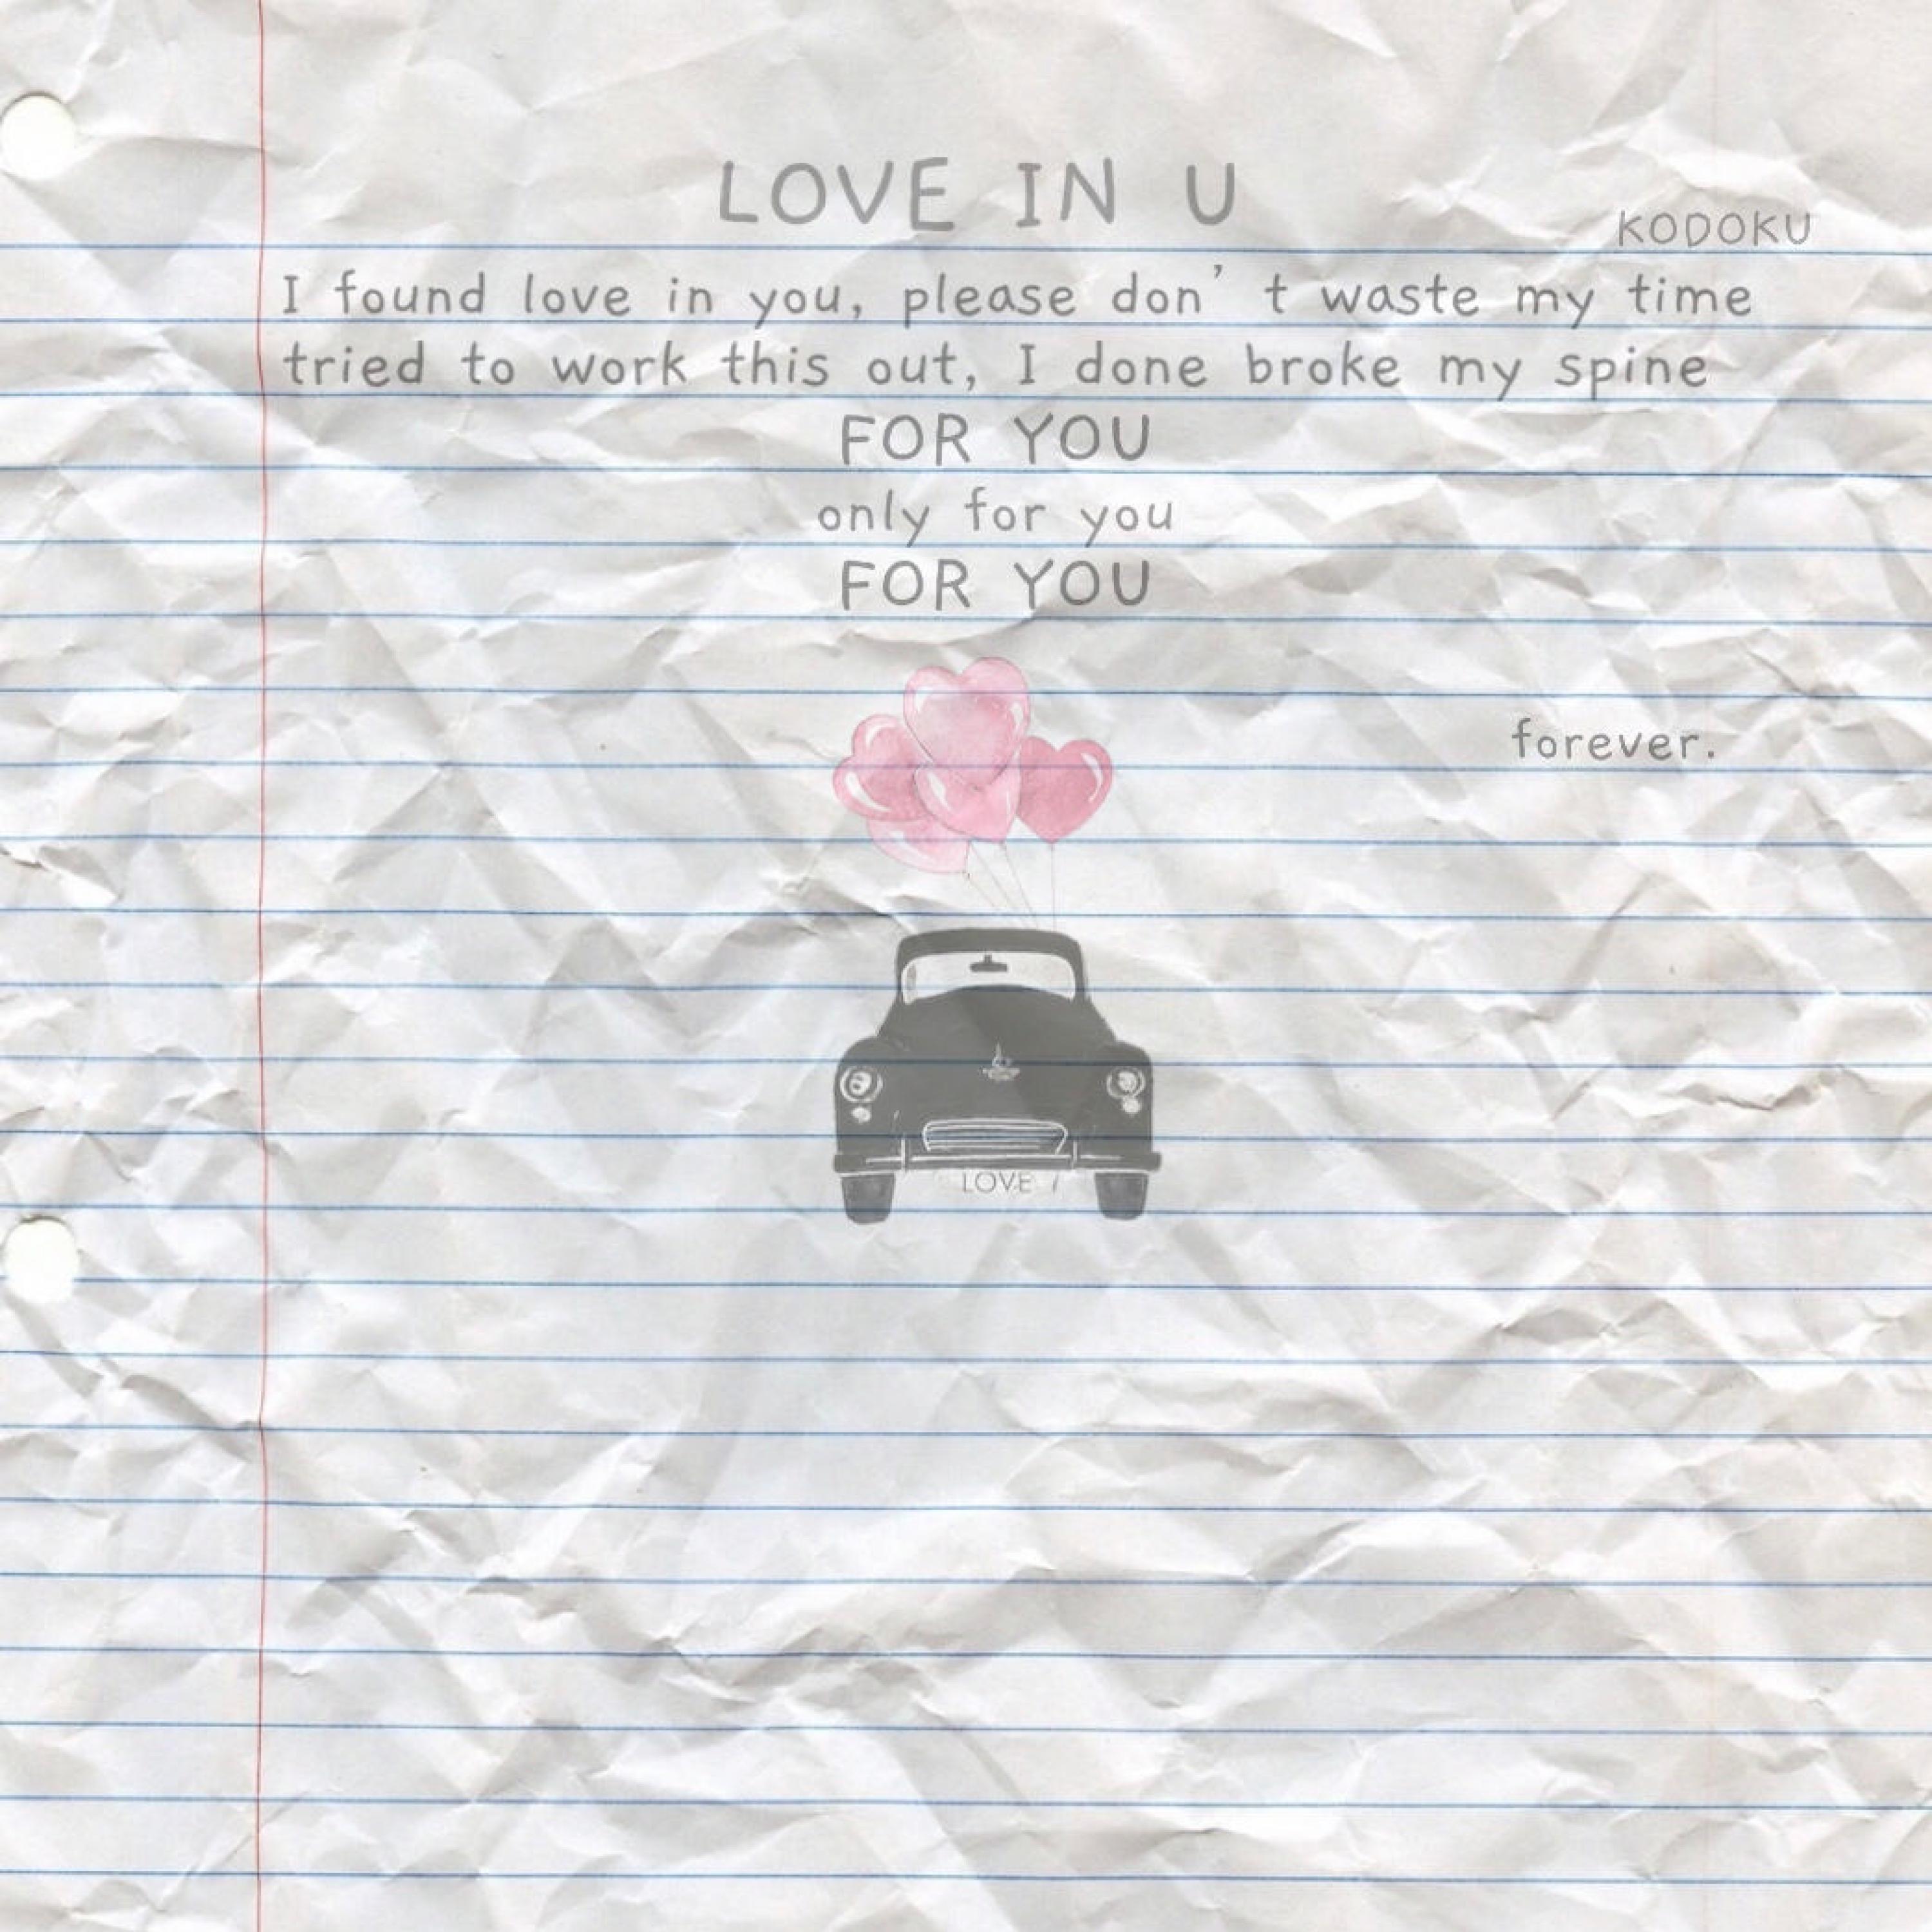 LOVE IN U
KODOKU
I found love in you, please don't waste my time
tried to work this out, I done broke my spine
FOR YOU
only for you
FOR YOU
forever.
LOVE